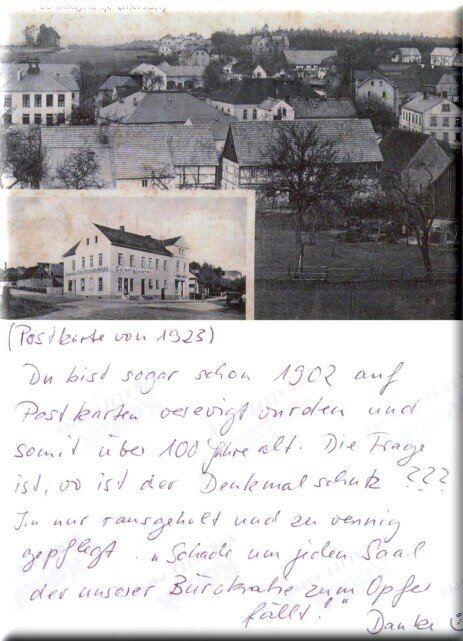 (Postkarte von 1923)
Du bist sogar schon 1902 auf
Postkarten verewigt wurden und
somit über 100 Jahre alt. Die Frage
ist, wo ist der Denkmalschutz ???
nur rausgeholt und zu wenig
gepflegt. „Schade um jeden Saal
der unserer Bürokratie zum Opfer
fällt!“
Danke